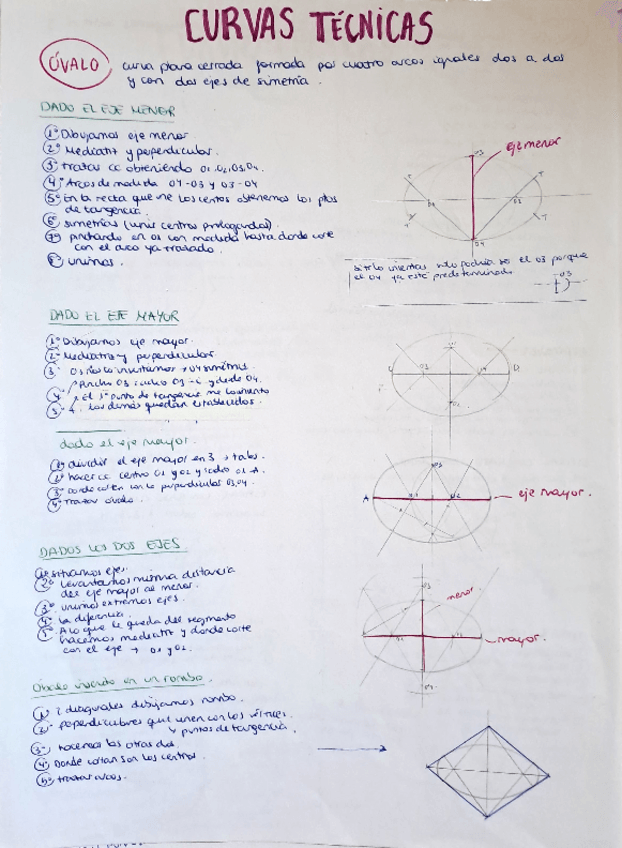 CURVAS TÉCNICAS
ÓVALO curva plana cerrada formada por cuatro arcos iguales dos a dos
y con dos ejes de simetría.
DADO EL EJE MENOR
1º Dibujamos eje menor.
2º Mediatriz y perpendicular.
3º trazar cc obteniendo O1, O2, O3, O4.
4º Arcos de medida O4-O3 y O3-O4
5º En la recta que une los centros obtenemos los ptos
de tangencia.
6º simetrías (unir centros prolongando).
7º pinchando en O1 con medida hasta donde corte
con el arco ya trazado.
8º unimos.
eje menor
O3
O4
T
T
T
T
si te lo inventas solo podría ser el O3 porque
el O4 ya está predeterminado
O3
DADO EL EJE MAYOR
1º Dibujamos eje mayor.
2º Mediatriz y perpendicular
3º O3 nos lo inventamos → O4 simétrico.
4º
5º los demás quedan establecidos.
dado el eje mayor.
1º dividir el eje mayor en 3
2º hacer cc centro O1 y O2 y radio O1-A.
3º Donde corten con la perpendicular O3, O4.
4º trazar óvalo.
A
eje mayor.
DADOS LOS DOS EJES
1º situamos ejes.
2º Levantamos misma distancia
del eje mayor al menor.
3º unimos extremos ejes.
4º la diferencia.
5º A lo que le queda del segmento
hacemos mediatriz y donde corte
con el eje → O1 y O2.
menor
mayor.
Óvalo inscrito en un rombo.
1º 2 diagonales dibujamos rombo.
2º perpendiculares que unen con los vértices.
↳ puntos de tangencia.
3º hacemos las otras dos.
4º Donde cortan son los centros.
5º trazar arcos.